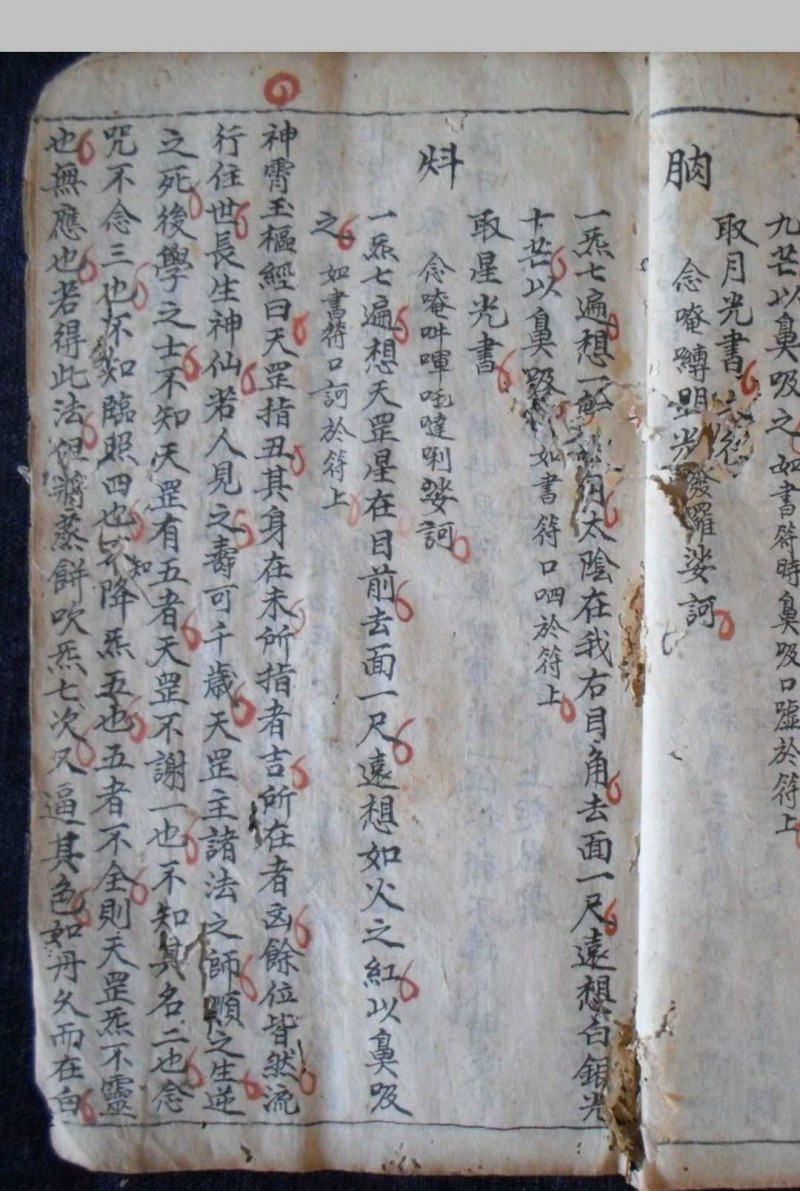 九芒以鼻吸之如書符時鼻吸口噓於符上
取月光書
朒
念唵
囉娑訶
一炁七遍想
太陰在我右目角去面一尺遠想白銀光
十芒以鼻吸
如書符口呬於符上
取星光書
炓
念唵吽㖶吒噠唎娑訶
一炁七遍想天罡星在目前去面一尺遠想如火之紅以鼻吸
之如書符口訶於符上
神霄玉樞經曰天罡指丑其身在未所指者吉所在者凶餘位皆然流
行住世長生神仙若人見之壽可千歲天罡主諸法之師順之生逆
之死後學之士不知天罡有五者天罡不謝一也不知其名二也念
咒不念三也不知臨照四也不知降炁五也五者不全則天罡炁不靈
也無應也若得此法但將蒸餅吹炁七次又逼其色如丹久而在白